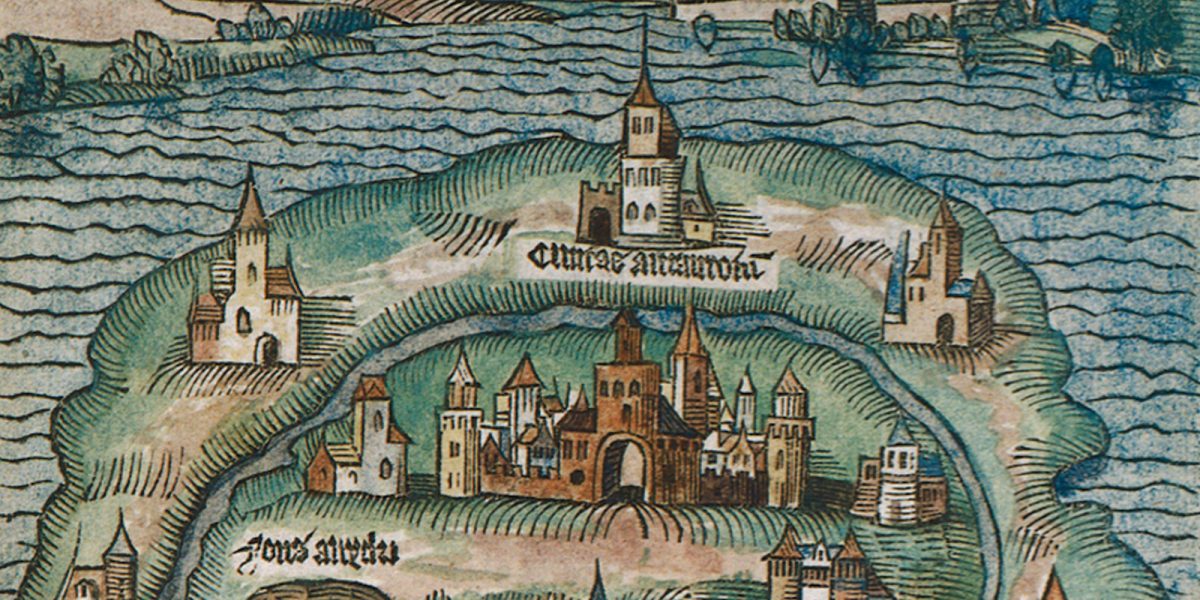 Ciuitas amaurotū
fons anydri